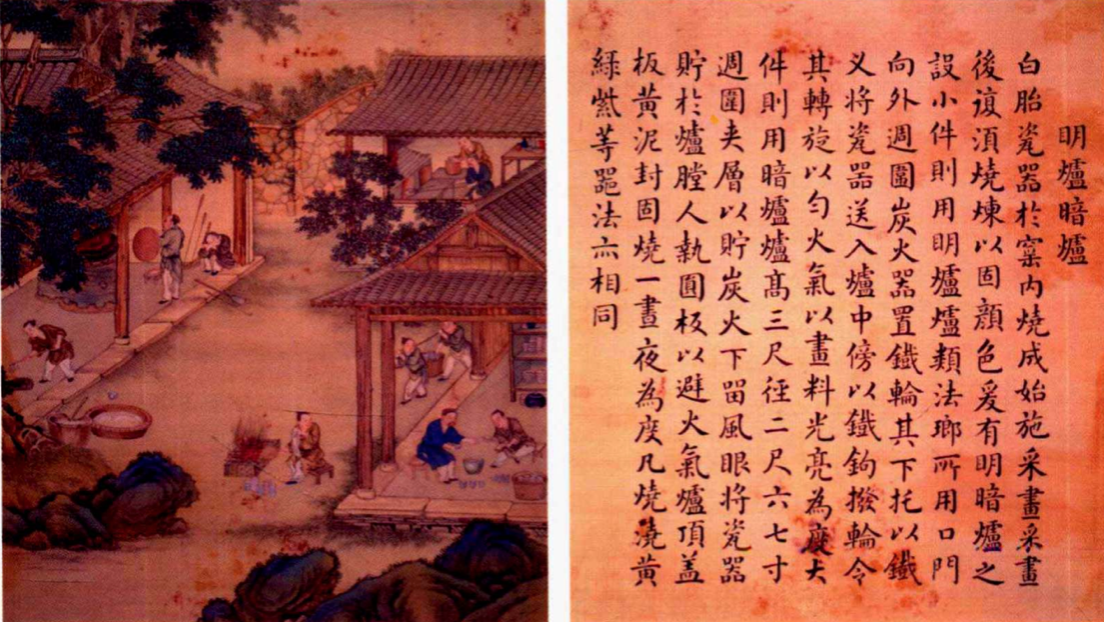 明爐暗爐
白胎瓷器於窯內燒成始施采畫采畫
後復須燒煉以固顏色爰有明暗爐之
設小件則用明爐爐類法瑯所用口門
向外週圍炭火器置鐵輪其下托以鐵
义將瓷器送入爐中傍以鐵鉤撥輪令
其轉旋以勻火氣以畫料光亮為度大
件則用暗爐爐高三尺徑二尺六七寸
週圍夾層以貯炭火下畱風眼將瓷器
貯於爐膛人執圓板以避火氣爐頂盖
板黃泥封固燒一晝夜為度凡燒澆黃
綠紫等器法亦相同